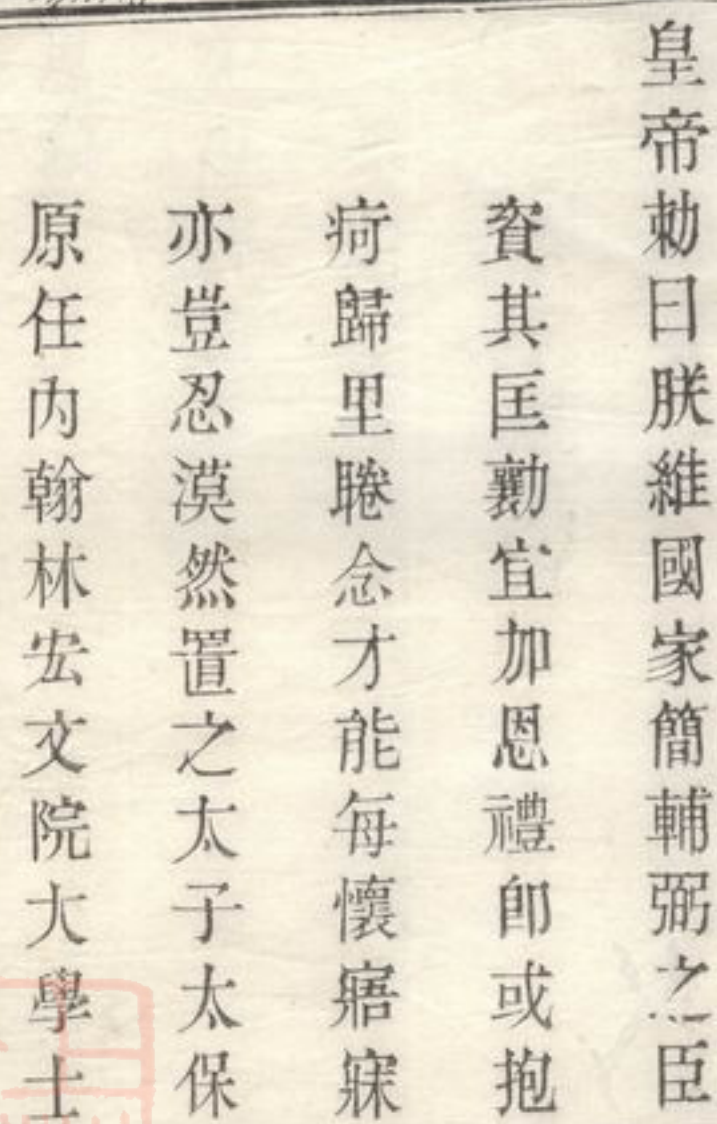 皇帝勅曰朕維國家簡輔弼之臣
資其匡勷宜加恩禮卽或抱
疴歸里睠念才能每懷寤寐
亦豈忍漠然置之太子太保
原任內翰林宏文院大學士